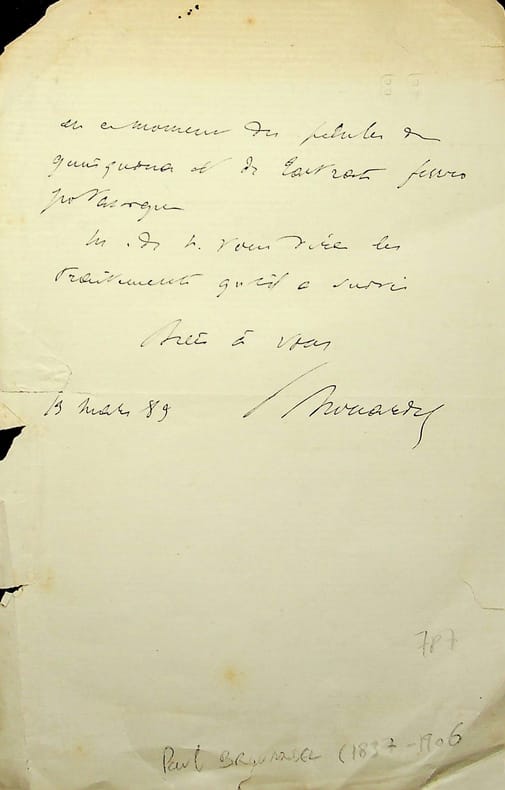 en ce moment des pilules de
quinquina et de tartrate ferrico
potassique
M. de h. vous dira les
traitements qu'il a suivis
Bien à vous
13 mars 89 Brouardel
787
Paul Brouardel (1837-1906